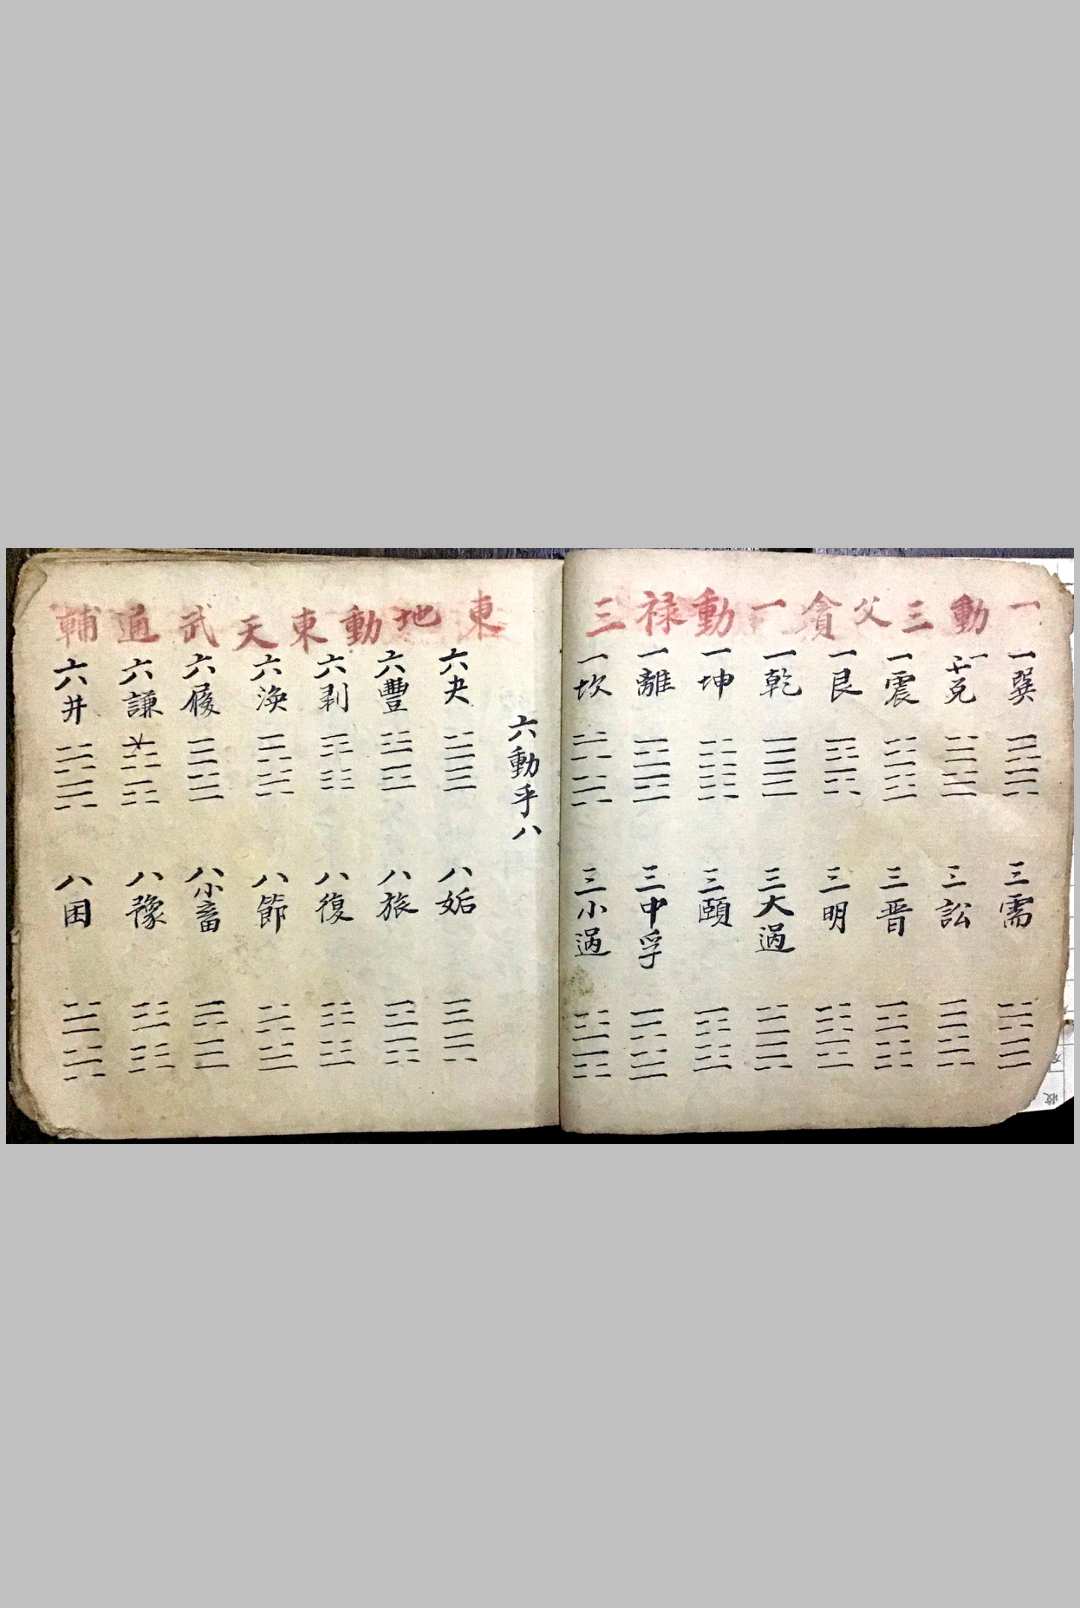 一動三父貪一動禄三
一巽
三需
一兌
三訟
一震
三晋
一艮
三明
一乾
三大過
一坤
三頤
一離
三中孚
一坎
三小過
六動乎八
東地動東天武通輔
六夬
八姤
六豐
八旅
六剥
八復
六渙
八節
六履
八小畜
六謙
八豫
六井
八困